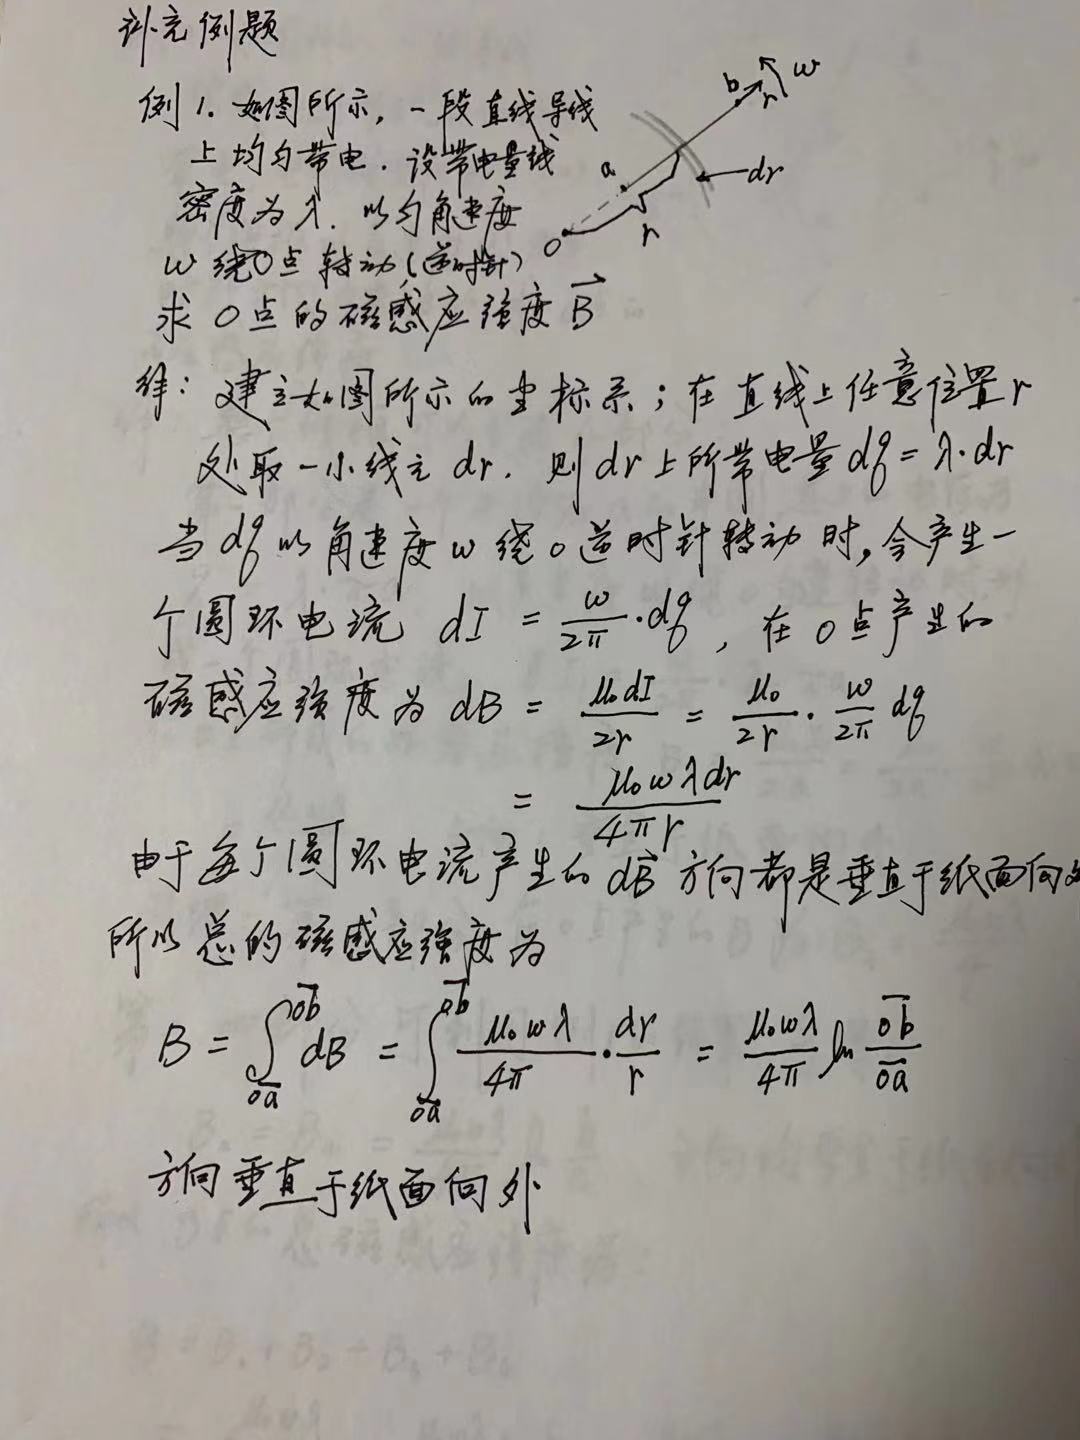 补充例题
例1. 如图所示, 一段直线导线
上均匀带电. 设带电量线
密度为λ. 以匀角速度
ω绕O点转动(逆时针)
求O点的磁感应强度 $\vec{B}$
b r ω
a
dr
O r
解: 建立如图所示的坐标系; 在直线上任意位置r
处取一小线元dr. 则dr上所带电量dq = λ·dr
当dq以角速度ω绕o逆时针转动时, 会产生一
个圆环电流 dI = $\frac{ω}{2π}$·dq, 在O点产生的
磁感应强度为 dB = $\frac{μ_0 dI}{2r}$ = $\frac{μ_0}{2r}$·$\frac{ω}{2π}$dq
= $\frac{μ_0 ω λ dr}{4πr}$
由于每个圆环电流产生的 $d\vec{B}$ 方向都是垂直于纸面向外
所以总的磁感应强度为
B = $\int_{\overline{oa}}^{\overline{ob}}$ dB = $\int_{\overline{oa}}^{\overline{ob}} \frac{μ_0 ω λ}{4π}·\frac{dr}{r}$ = $\frac{μ_0 ω λ}{4π} \ln \frac{\overline{ob}}{\overline{oa}}$
方向垂直于纸面向外